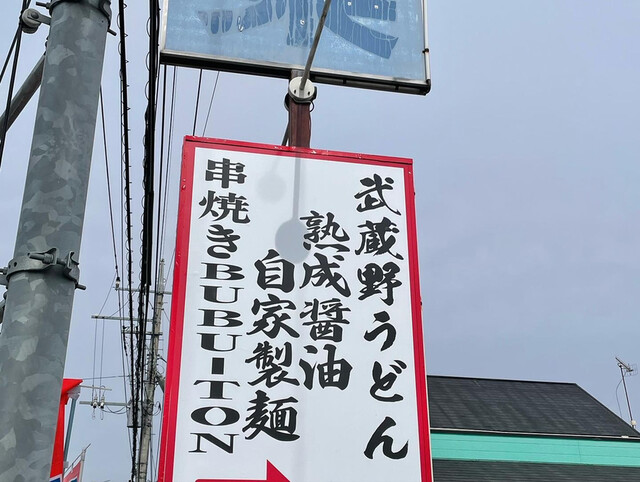 武蔵野うどん
熟成醤油
自家製麺
串焼きBUBUITON